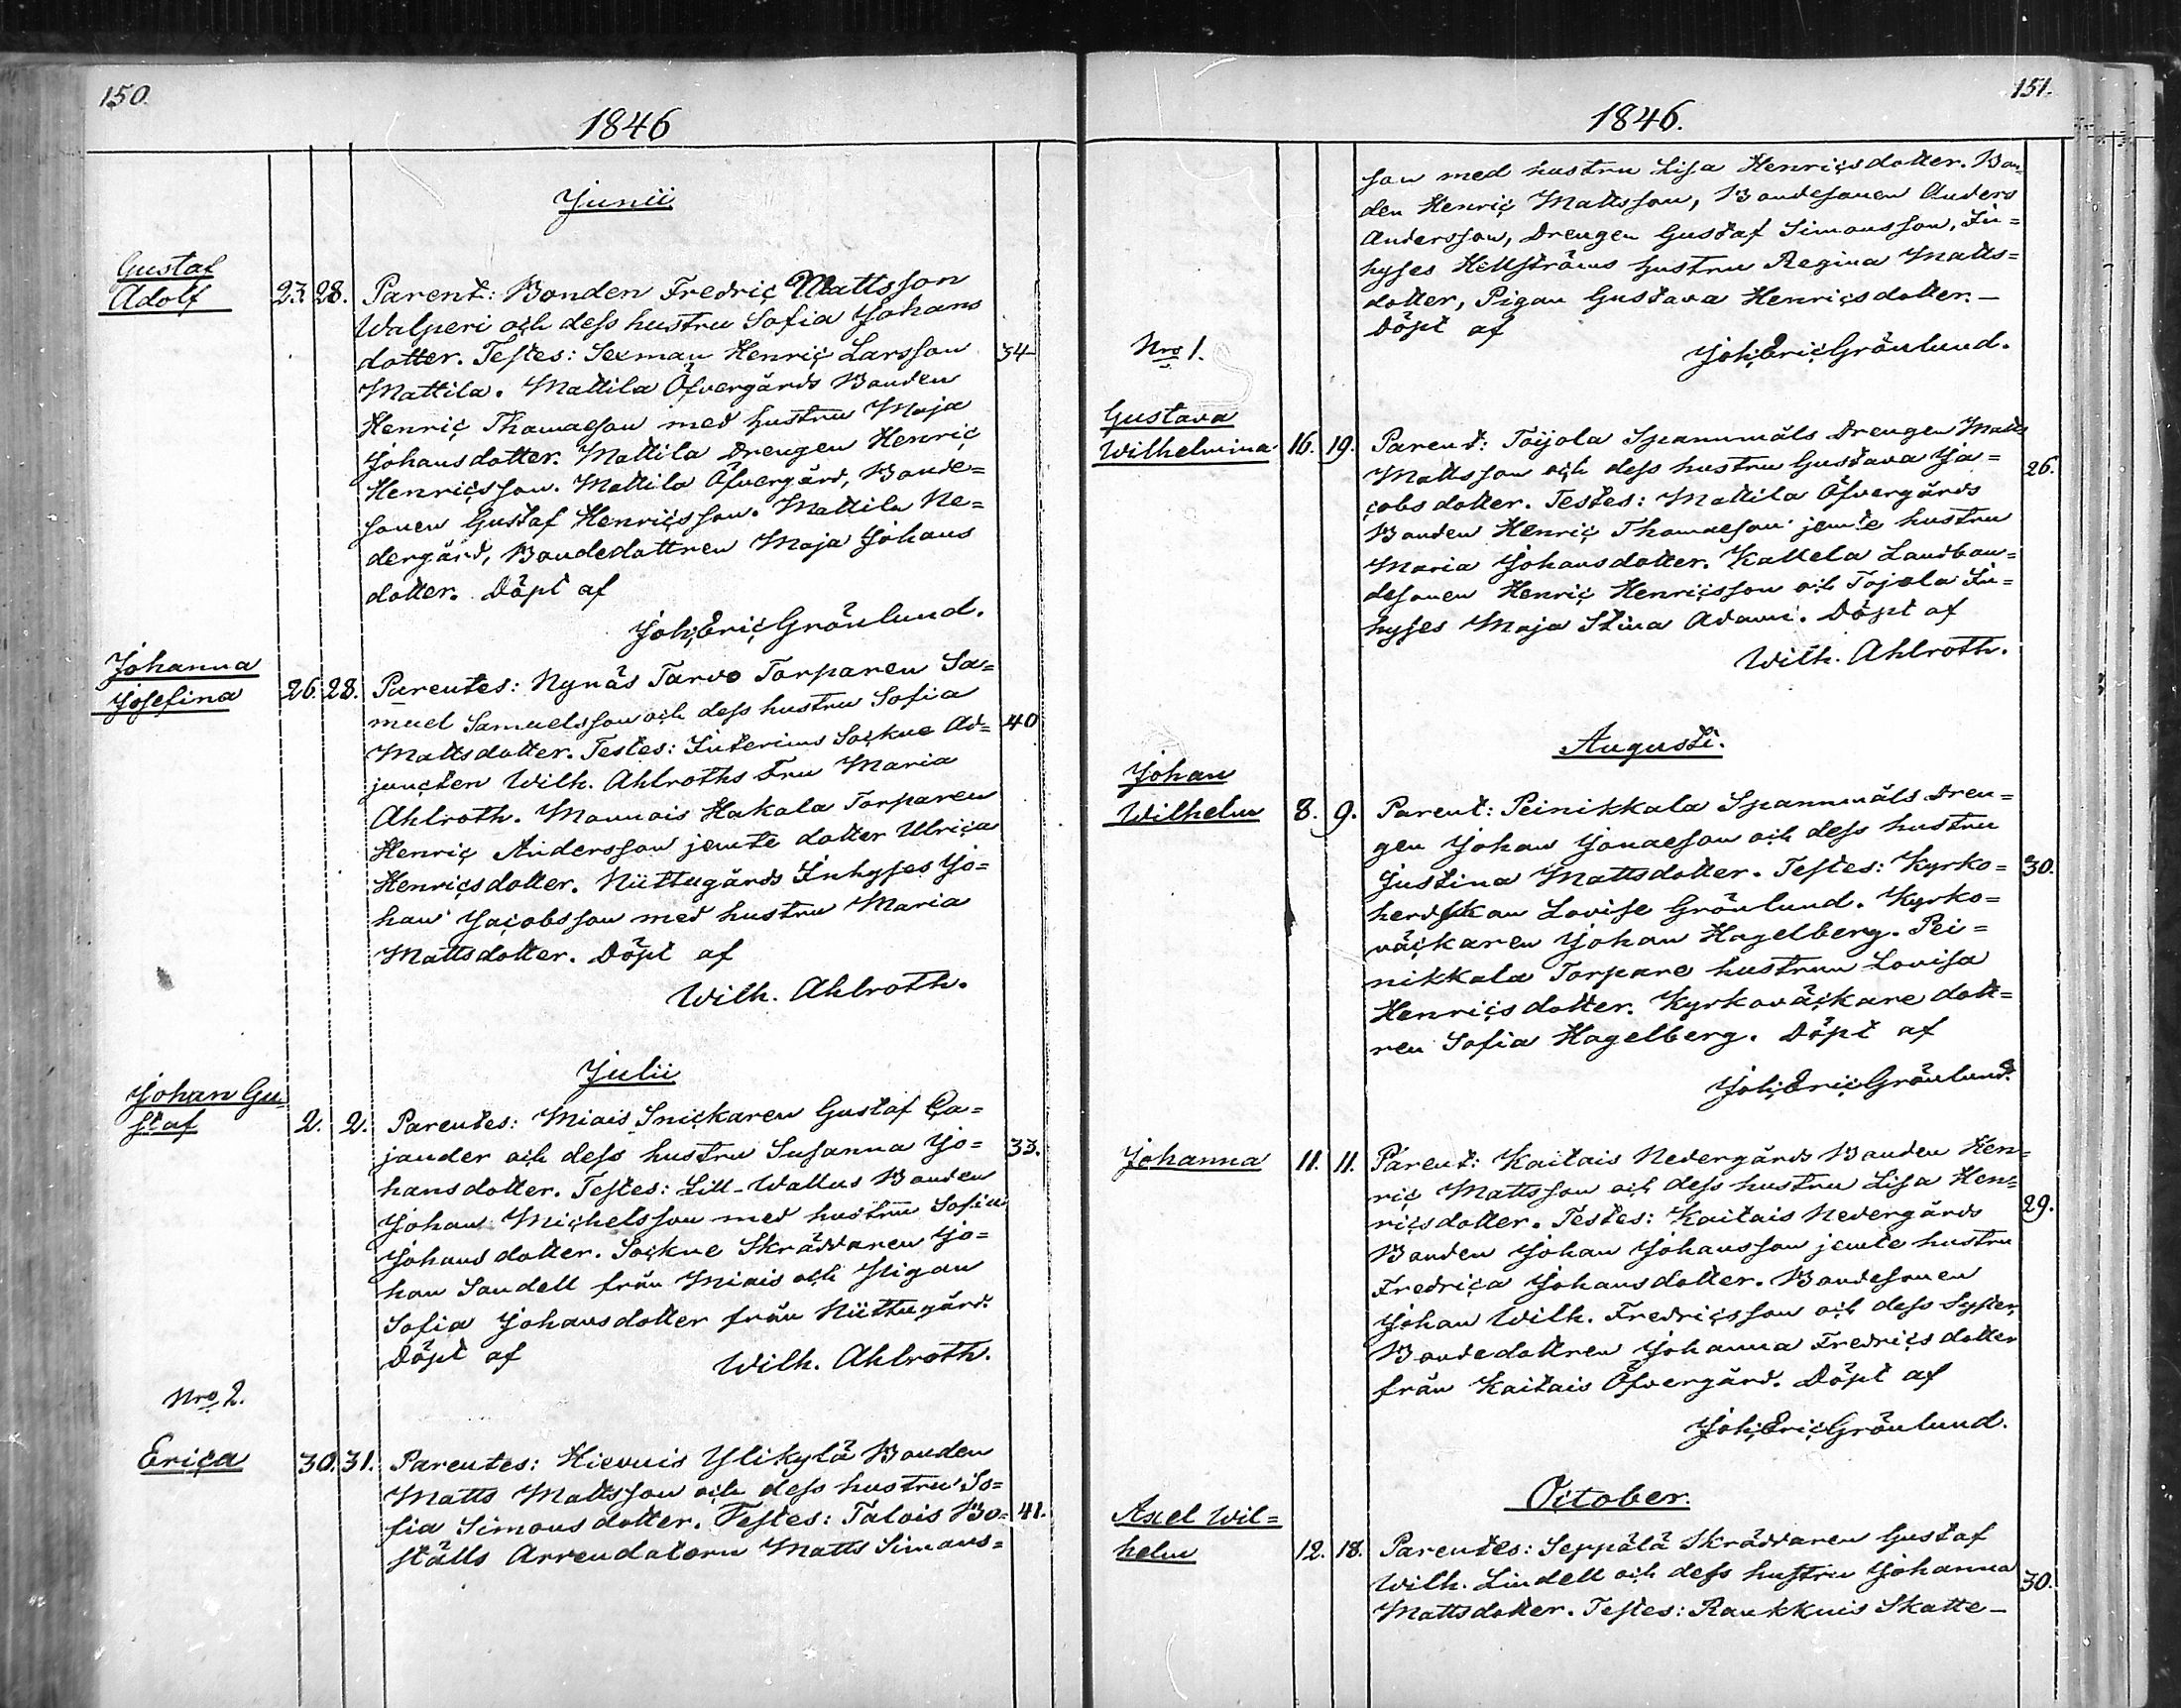 150.
1846
Junii
Gustaf
Adolf 23. 28. Parent: Bonden Fredric Mattsson
Walperi och dess hustru Sofia Johans
dotter. Testes: Sexman Henric Larsson 34
Mattila. Mattila Öfvergårds Bonden
Henric Thomasson med hustru Maja
Johansdotter. Mattila Drengen Henric
Henricsson. Mattila Öfvergård, Bonde=
sonen Gustaf Henricsson. Mattila Ne=
dergård, Bondedottren Maja Johans
dotter. Döpt af
Joh. Eric Grönlund.
Johanna
Josefina 26. 28. Parentes: Nynäs Tarvo Torparen Sa=
muel Samuelsson och dess hustru Sofia
Mattsdotter. Testes: Interims Sockne Ad= 40
juncten Wilh. Ahlroths Fru Maria
Ahlroth. Monnois Hakala Torparen
Henric Andersson jemte dotter Ulrica
Henricsdotter. Niittugårds Inhyses Jo=
han Jacobsson med hustru Maria
Mattsdotter. Döpt af
Wilh. Ahlroth.
Julii
Johan Gu=
staf 2. 2. Parentes: Miais Snickaren Gustaf Ca=
jander och dess hustru Susanna Jo= 33.
hansdotter. Testes: Lill-Wallus Bonden
Johan Michelsson med hustru Sofia
Johansdotter. Sockne Skräddaren Jo=
han Sandell från Miais och Pigan
Sofia Johansdotter från Niittugård.
Döpt af Wilh. Ahlroth.
Nro 2.
Erica 30. 31. Parentes: Hievuis Ylikylä Bonden
Matts Mattsson och dess hustru So=
fia Simonsdotter. Testes: Talois Bo= 41.
ställs Arrendatorn Matts Simons=
151.
1846.
son med hustru Lisa Henricsdotter. Bon=
den Henric Mattsson, Bondesonen Anders
Andersson, Drengen Gustaf Simonsson, In=
hyses Hellströms hustru Regina Matts=
dotter, Pigan Gustava Henricsdotter.—
Döpt af
Nro 1.
Joh. Eric Grönlund.
Gustava
Wilhelmina 16. 19. Parent: Toijola Spannmåls Drengen Matts
Mattsson och dess hustru Gustava Ja= 26.
cobsdotter. Testes: Mattila Öfvergårds
Bonden Henric Thomasson jemte hustru
Maria Johansdotter. Kallela Landbon=
desonen Henric Henricsson och Tojola In=
hyses Maja Stina Adami. Döpt af
Wilh. Ahlroth.
Augusti.
Johan
Wilhelm 8. 9. Parent: Peinikkala Spannmåls Dren=
gen Johan Jonaesson och dess hustru
Justina Mattsdotter. Testes: Kyrko= 30.
herdskan Lovise Grönlund. Kyrko=
väckaren Johan Hagelberg. Pei=
nikkala Torpare hustrun Lovisa
Henricsdotter. Kyrkoväckare dott=
ren Sofia Hagelberg. Döpt af
Joh. Eric Grönlund.
Johanna 11. 11. Parent: Kaitais Nedergårds Bonden Hen=
ric Mattsson och dess hustru Lisa Hen=
ricsdotter. Testes: Kaitais Nedergårds 29.
Bonden Johan Johansson jemte hustru
Fredrica Johansdotter. Bondesonen
Johan Wilh. Fredricsson och dess Syster,
Bondedottren Johanna Fredricsdotter
från Kaitais Öfvergård. Döpt af
Joh. Eric Grönlund.
October.
Axel Wil=
helm 12. 18. Parentes: Seppälä Skräddaren Gustaf
Wilh. Lindell och dess hustru Johanna 30.
Mattsdotter. Testes: Raukkuis Skatte-